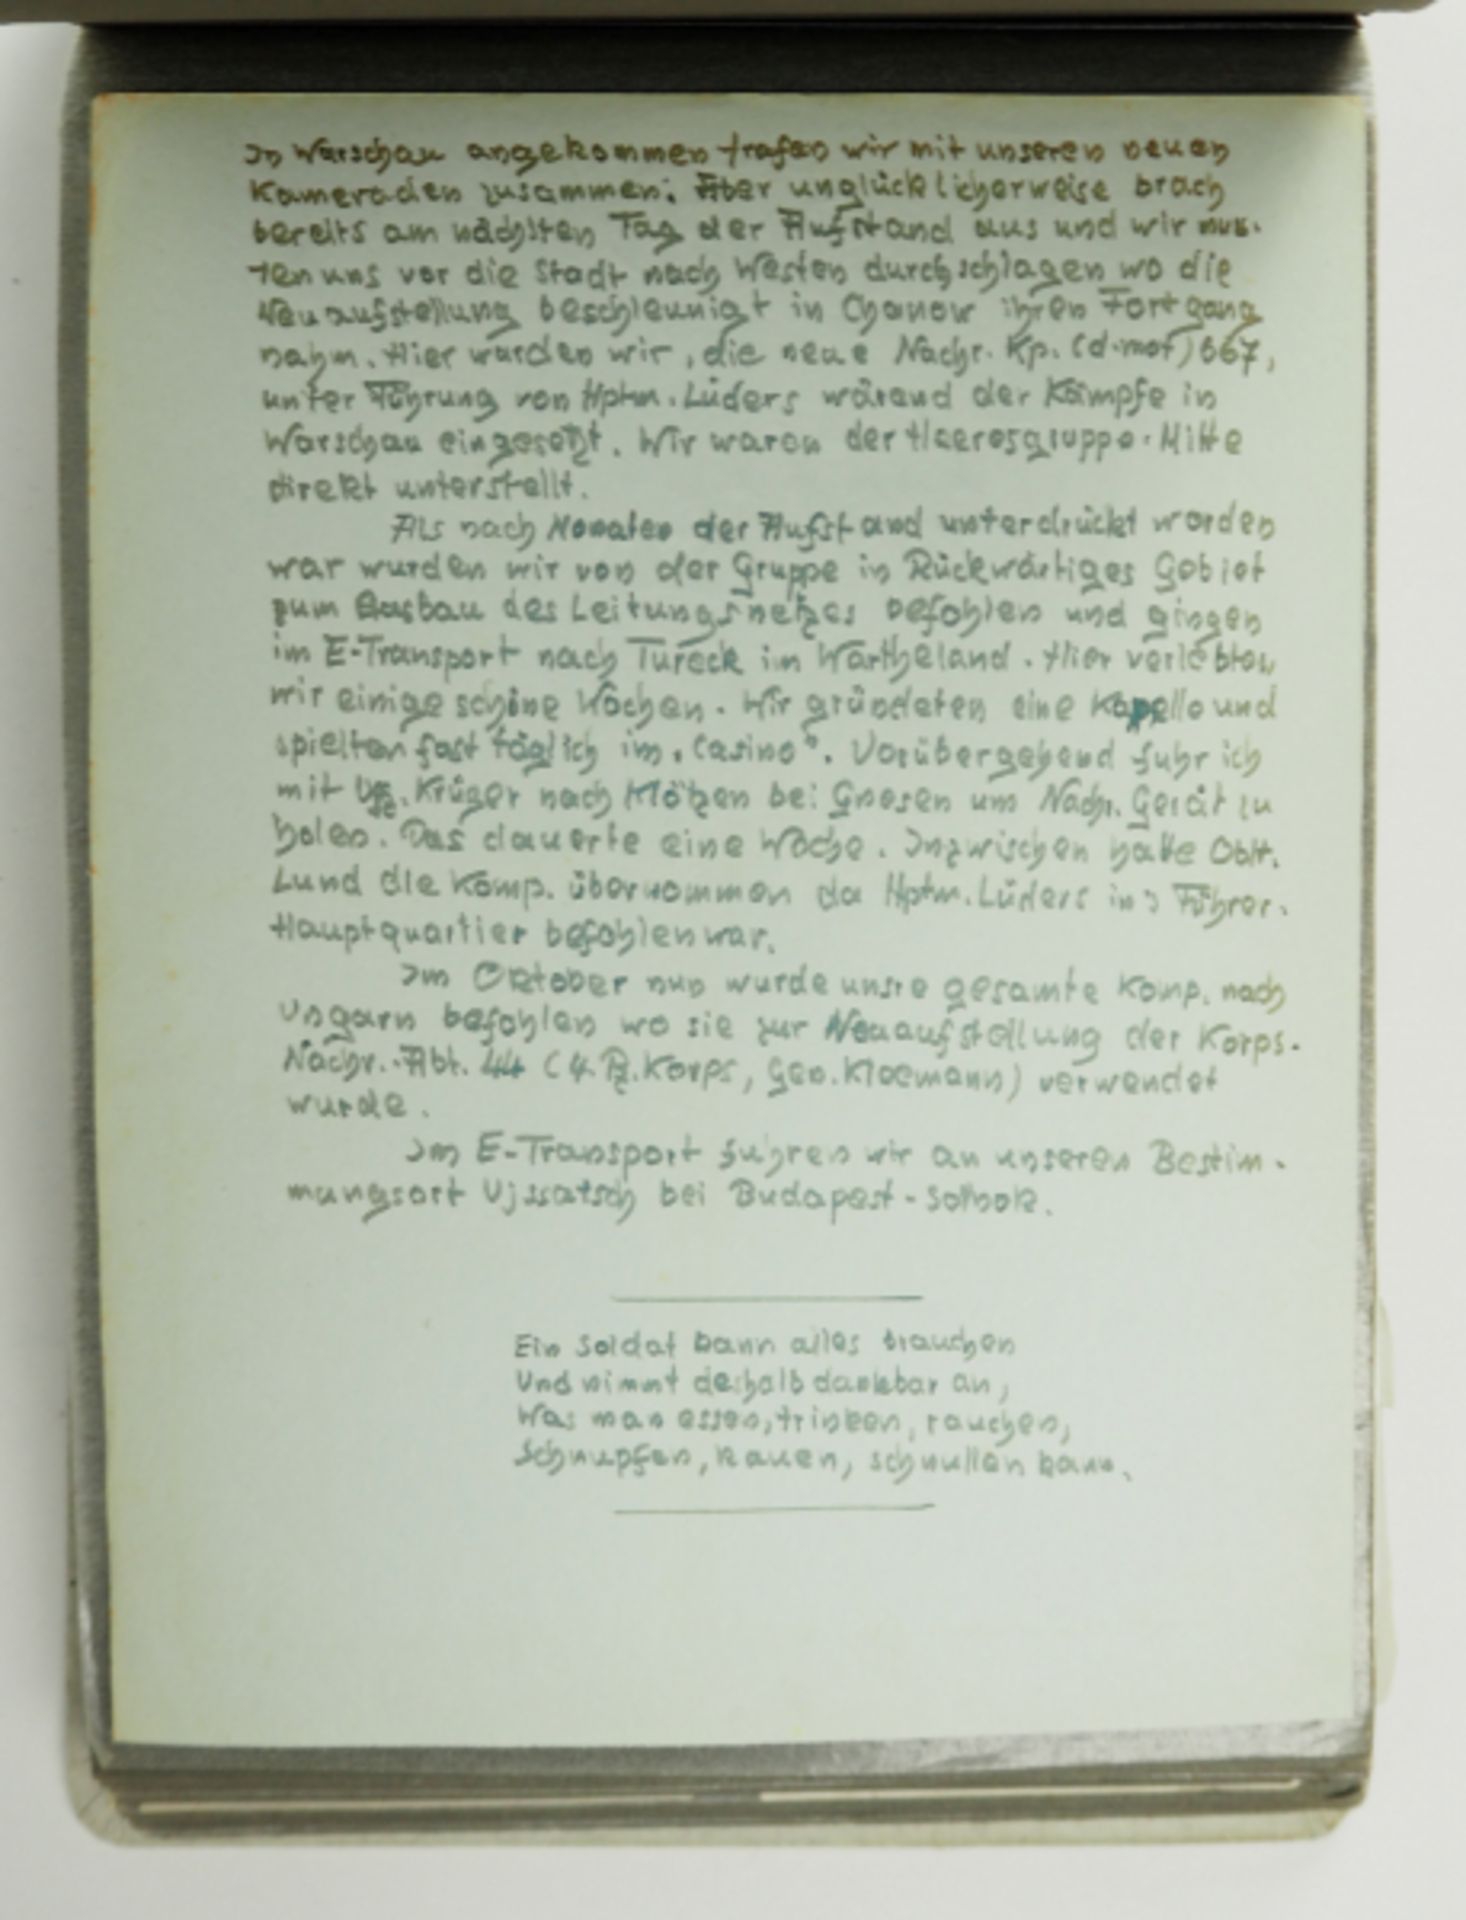 In Warschau angekommen trafen wir mit unseren neuen
Kameraden zusammen. Aber unglücklicherweise brach
bereits am nächsten Tag der Aufstand aus und wir mus-
ten uns vor die Stadt nach Westen durchschlagen wo die
Neuaufstellung beschleunigt in Chanow ihren Fortgang
nahm. Hier wurden wir, die neue Nachr. Kp. (d. mot) 667,
unter Führung von Hptm. Lüders wärend der Kämpfe in
Warschau eingesetzt. Wir waren der Heeresgruppe-Mitte
direkt unterstellt.
Als nach Monaten der Aufstand unterdrückt worden
war wurden wir von der Gruppe in Rückwärtiges Gebiet
zum Ausbau des Leitungsnetzes befohlen und gingen
im E-Transport nach Tureck im Wartheland. Hier verlebten
wir einige schöne Wochen. Wir gründeten eine Kapelle und
spielten fast täglich im „Casino“. Vorübergehend fuhr ich
mit Uffz. Krüger nach Klötzen bei Gnesen um Nachr. Gerät zu
holen. Das dauerte eine Woche. Inzwischen hatte Oblt.
Lund die Komp. übernommen da Hptm. Lüders ins Führer-
Hauptquartier befohlen war.
Im Oktober nun wurde unsre gesamte Komp. nach
Ungarn befohlen wo sie zur Neuaufstellung der Korps-
Nachr.-Abt. 44 (4. Pz. Korps, Gen. Kleemann) verwendet
wurde.
Im E-Transport fuhren wir an unseren Bestim-
mungsort Ujssatsch bei Budapest - Solnok.
Ein Soldat kann alles brauchen
Und nimmt deshalb dankbar an,
Was man essen, trinken, rauchen,
Schnupfen, kauen, schnullen kann.